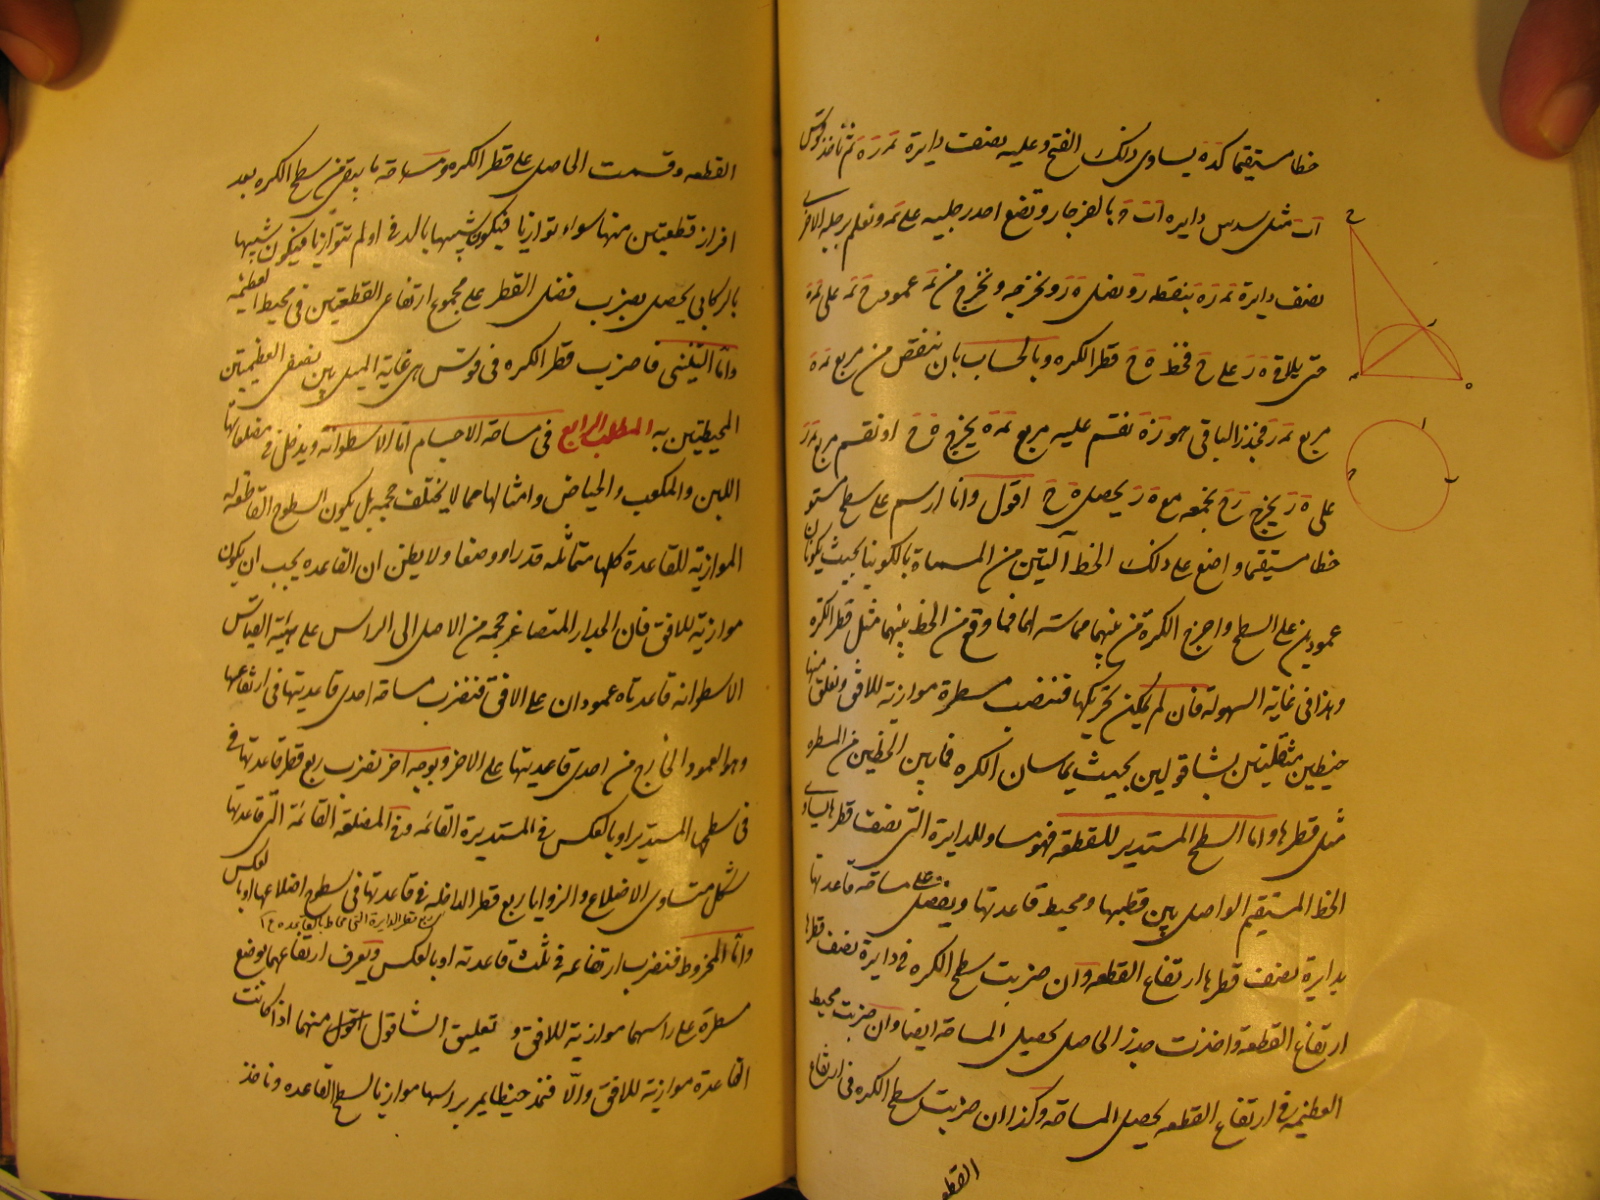 خطا مستقيما كده يساوى ذلك الفتح وعليه نصف دايرة مره ثم ناخذ قوس
اب مثل سدس دايره اب بالفرجار ونضع احد رجليه على م ونعلم برجله الاخرى
نصف دايرة مره بنقطه ر ونصل ه ر ونخرجه ونخرج من م عمود ح م على م ه
حتى يلاقى ه ر على ح فخط ه ح قطر الكره وبالحساب بان ننقص من مربع م ه
مربع م ر فجذر الباقى هو ر ه نقسم عليه مربع م ه يخرج ه ح او نقسم مربع م ر
على ه ر يخرج ر ح نجمعه مع ه ر يحصل ه ح اقول وانا ارسم على سطح مستو
خطا مستقيما واضع على ذلك الخط آلتين من المسماة بالكونيا بحيث يكونان
عمودين على السطح واخرج الكرة من بينهما مماسة لهما فما وقع من الخط بينهما مثل قطر الكرة
وهذا فى غاية السهولة فان لم يمكن تحريكها فننصب مسطرة موازية للافق ونعلق منها
خيطين مثقلتين بشاقولين بحيث يماسان الكره فما بين الخطين من المسطره
مثل قطرها واما السطح المستدير للقطعه فهو مساو للدايرة التى نصف قطرها يساوى
الخط المستقيم الواصل بين قطبها ومحيط قاعدتها ويفضل على مساحة قاعدتها
بدايرة نصف قطرها ارتفاع القطعه وان ضربت سطح الكره فى دايرة نصف قطرها
ارتفاع القطعه واخذت جذر الحاصل يحصل المساحة ايضا وان ضربت محيط
العظيمه فى ارتفاع القطعه يحصل المساحة وكذا ان ضربت سطح الكره فى ارتفاع
القطعه
ح
ر
م
ه
ا
ب
القطعه وقسمت الحاصل على قطر الكره ومساحة ما يبقى من سطح الكره بعد
افراز قطعتين منها سواء توازيا فيكون شبيها بالدف او لم يتوازيا فيكون شبيها
بالركابى يحصل بضرب فضل القطر على مجموع ارتفاعى القطعتين فى محيط العظيمه
واما التلينى فاضرب قطر الكره فى قوس هى غاية الميل بين نصفى العظيمتين
المحيطتين به المطلب الرابع فى مساحة الاجسام اما الاسطوانة ويدخل فى مضلعاتها
اللبن والمكعب والحياض وامثالها مما لا يختلف حجمه بل يكون السطوح القاطعة له
الموازية للقاعدة كلها متماثلة قدرا ووضعا ولا يظن ان القاعده يجب ان يكون
موازية للافق فان الجدار المتصاغر حجمه من الاصل الى الراس على هيئة القياس
الاسطوانه قاعدتاه عمودان على الافق فنضرب مساحة احدى قاعدتيها فى ارتفاعها
وهو العمود الخارج من احدى قاعدتيها على الاخر وبوجه اخر نضرب ربع قطر قاعدتها فى
فى سطحها المستدير او بالعكس فى المستديرة القائمه وفى المضلعة القائمة التى قاعدتها
شكل متساوى الاضلاع والزوايا ربع قطر الداخله فى قاعدتها فى سطوح اضلاعها او بالعكس
ربع قطر الدايرة التى تحاط بالقاعده ١٢
واما المخروط فنضرب ارتفاعه فى ثلث قاعدته او بالعكس ونعرف ارتفاعهما بوضع
مسطرة على راسهما موازية للافق و تعليق الشاقول منهما اذا كانت
القاعدة موازية للافق والا فنمد خيطا يمر براسها موازيا لسطح القاعده وناخذ